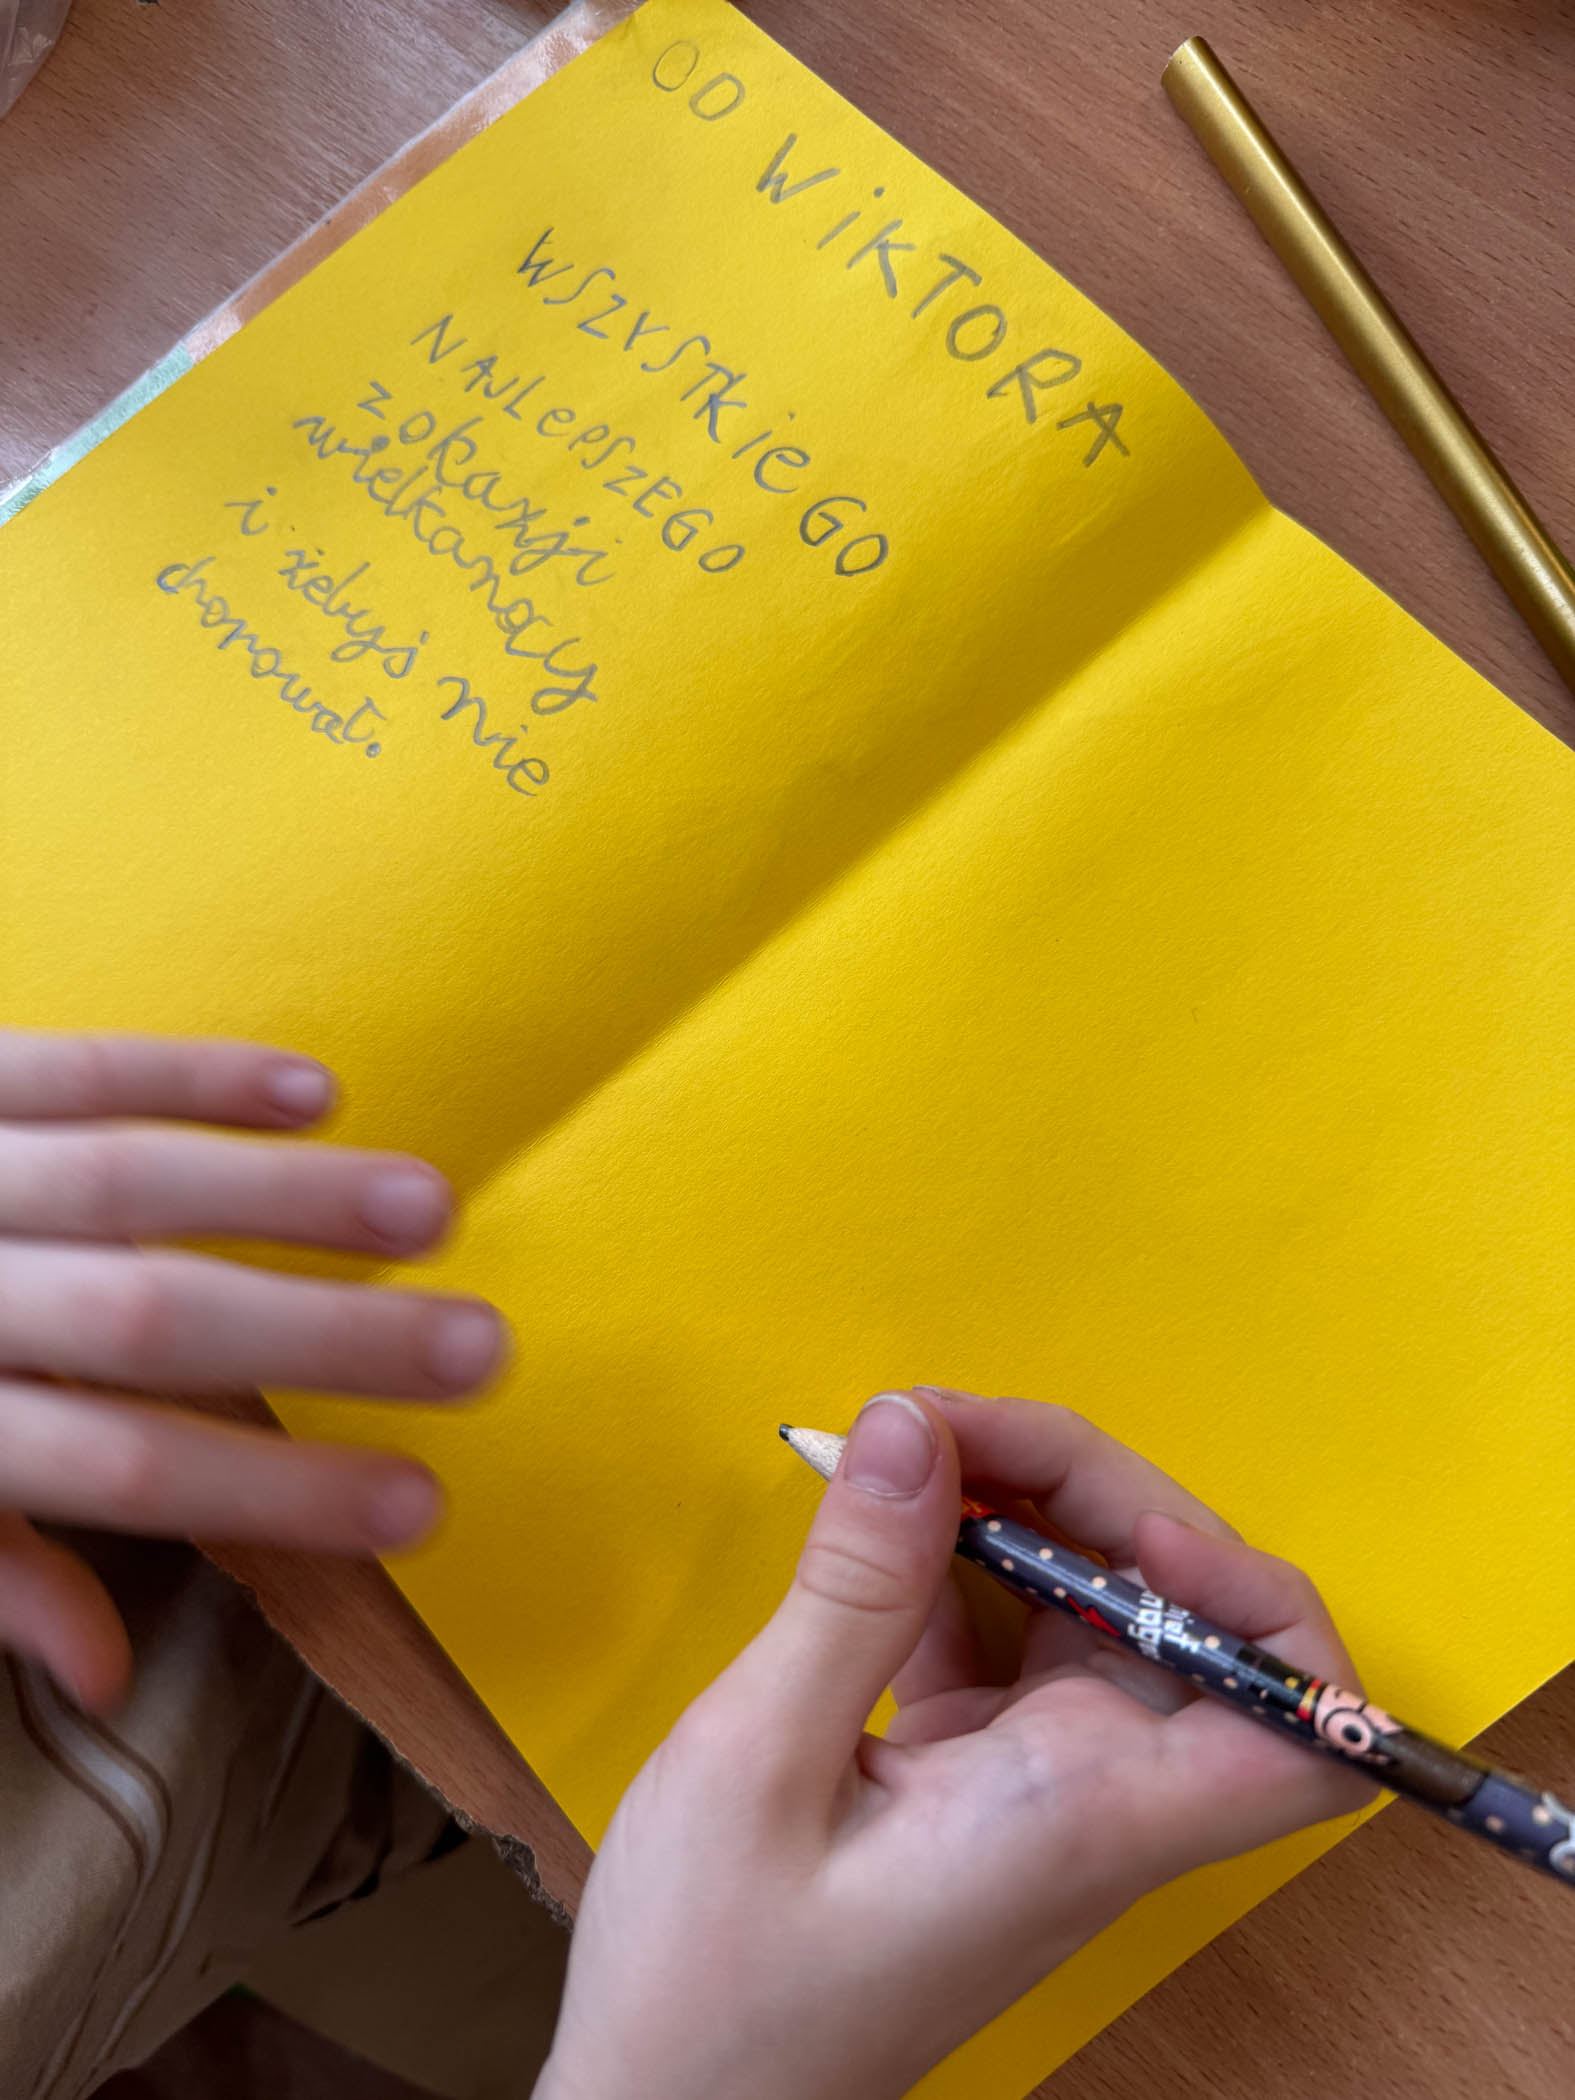 OD WiKTORA
WSZYSTKieGO
NAJLePSZEGO
z okazji
wielkanocy
i żebyś nie
chorował.